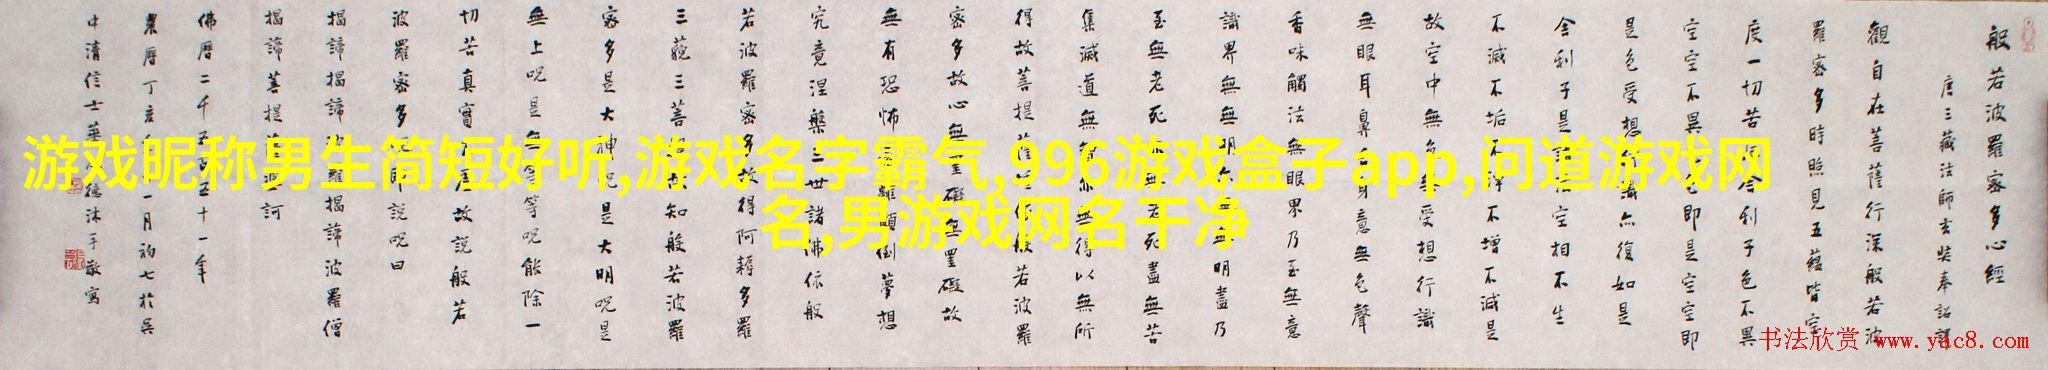 般若波羅密多心經
唐三藏法師玄奘奉詔譯
觀自在菩薩行深般若波
羅密多時照見五蘊皆空
度一切苦厄舍利子色不異
空空不異色色即是空空即
是色受想行識亦復如是
舍利子是諸法空相不生
不滅不垢不淨不增不減是
故空中無色無受想行識
無眼耳鼻舌身意無色聲
香味觸法無眼界乃至無意
識界無無明亦無無明盡乃
至無老死亦無老死盡無苦
集滅道無智亦無得以無所
得故菩提薩埵依般若波羅
密多故心無罣礙無罣礙故
無有恐怖遠離顛倒夢想
究竟涅槃三世諸佛依般
若波羅密多故得阿耨多羅
三藐三菩提故知般若波羅
密多是大神呪是大明呪是
無上呪是無等等呪能除一
切苦真實不虛故說般若
波羅密多呪即說呪曰
揭諦揭諦波羅揭諦波羅僧
揭諦菩提薩婆訶
佛曆二千五百五十一年
農曆丁亥一月初七於吳
中清信士華德沐手敬寫
游戏昵称男生简短好听,游戏名字霸气,996游戏盒子app,问道游戏网
名,男游戏网名干净
书法欣赏 www.yac8.com